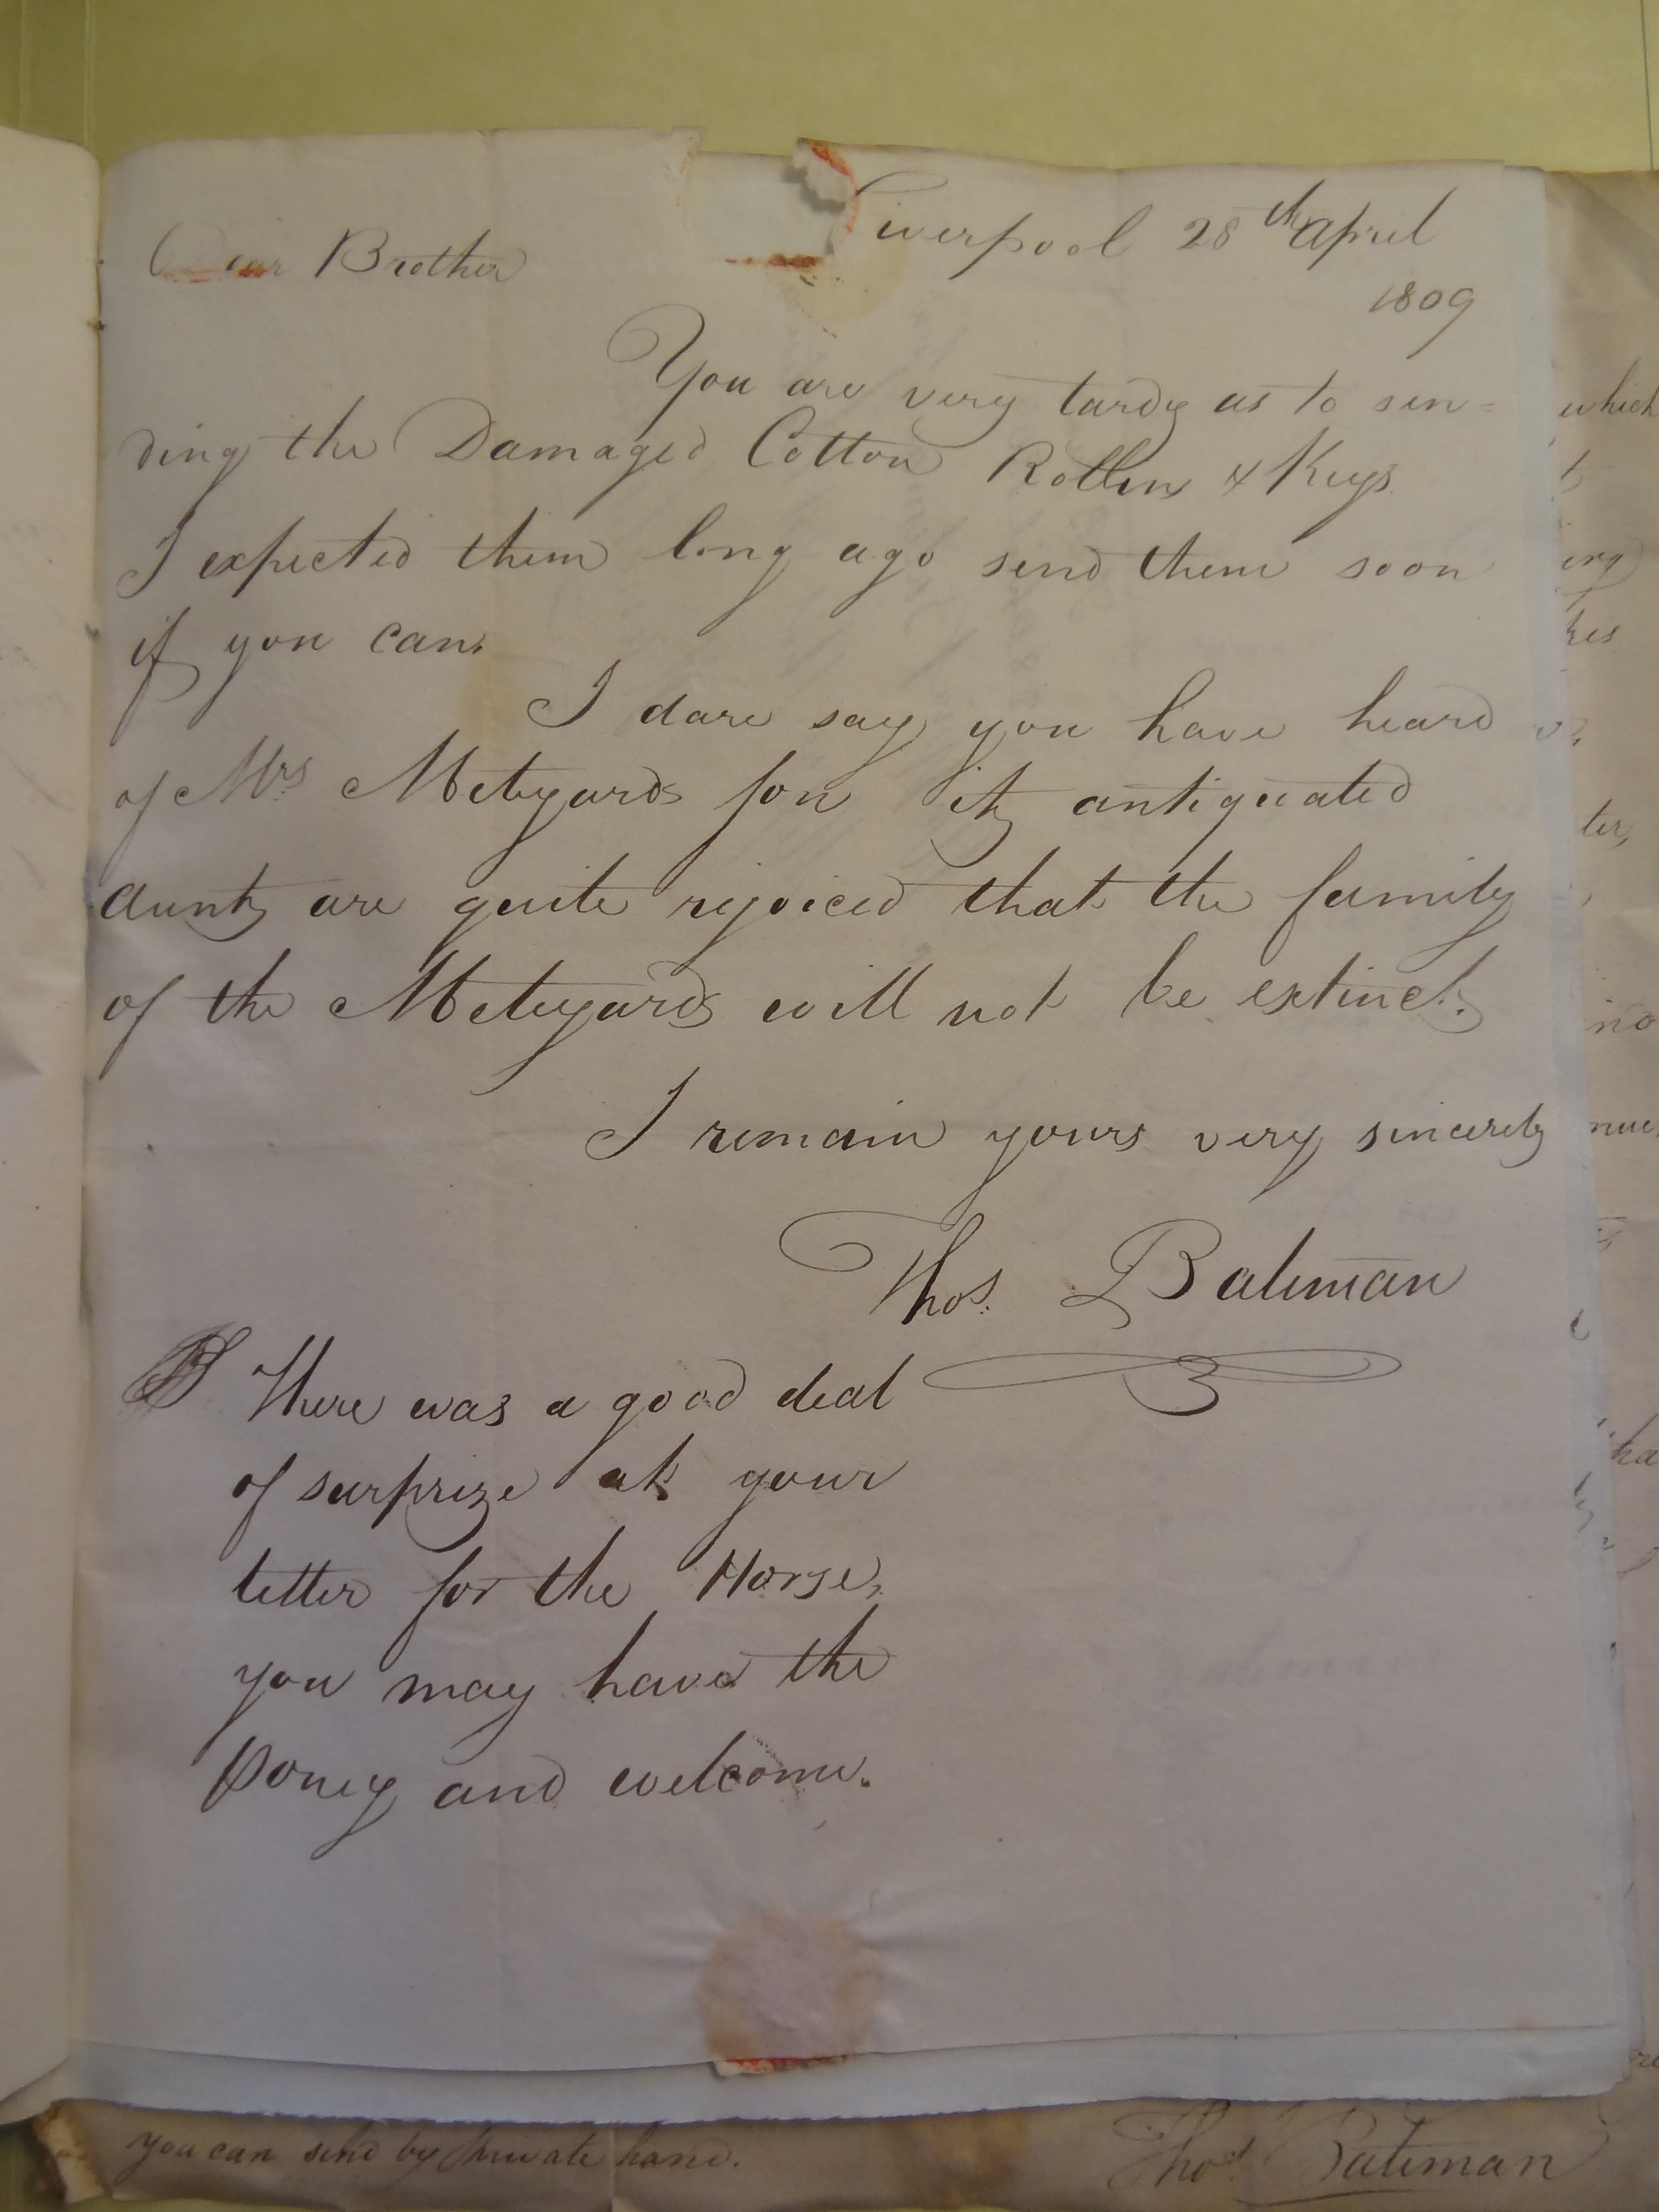 Liverpool 28th April
1809
Dear Brother
You are very tardy as to sen=
ding the Damaged Cotton Rollers & Keys
I expected them long ago send them soon
if you can.
I dare say you have heard
of Mrs Meteyards son its antiquated
aunts are quite rejoiced that the family
of the Meteyards will not be extinct.
I remain yours very sincerely
Thos. Bateman
PS There was a good deal
of surprize at your
letter for the Horse,
you may have the
Poney and welcome.
you can send by private hand.
Thos Bateman
which